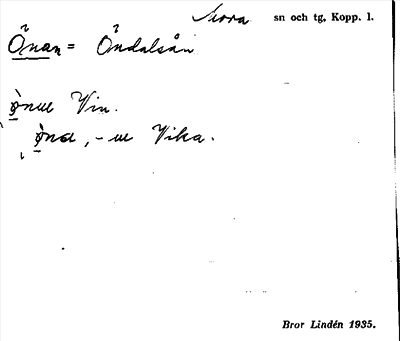 Mora sn och tg, Kopp. l.
Önan = Öndalsån
Vin.
Vika.
Bror Lindén 1935.